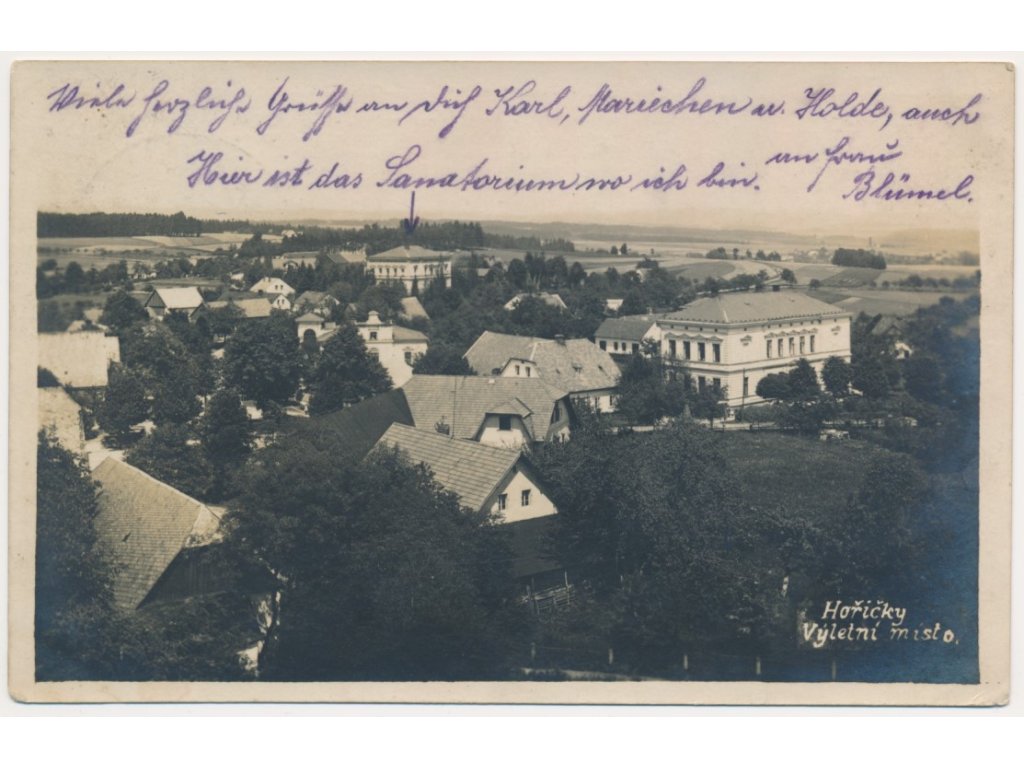 Viele herzliche Grüsse an Dich Karl, Mariechen u. Holde, auch
an Frau
Blümel.
Hier ist das Sanatorium wo ich bin.
Hořičky
Výletní místo.